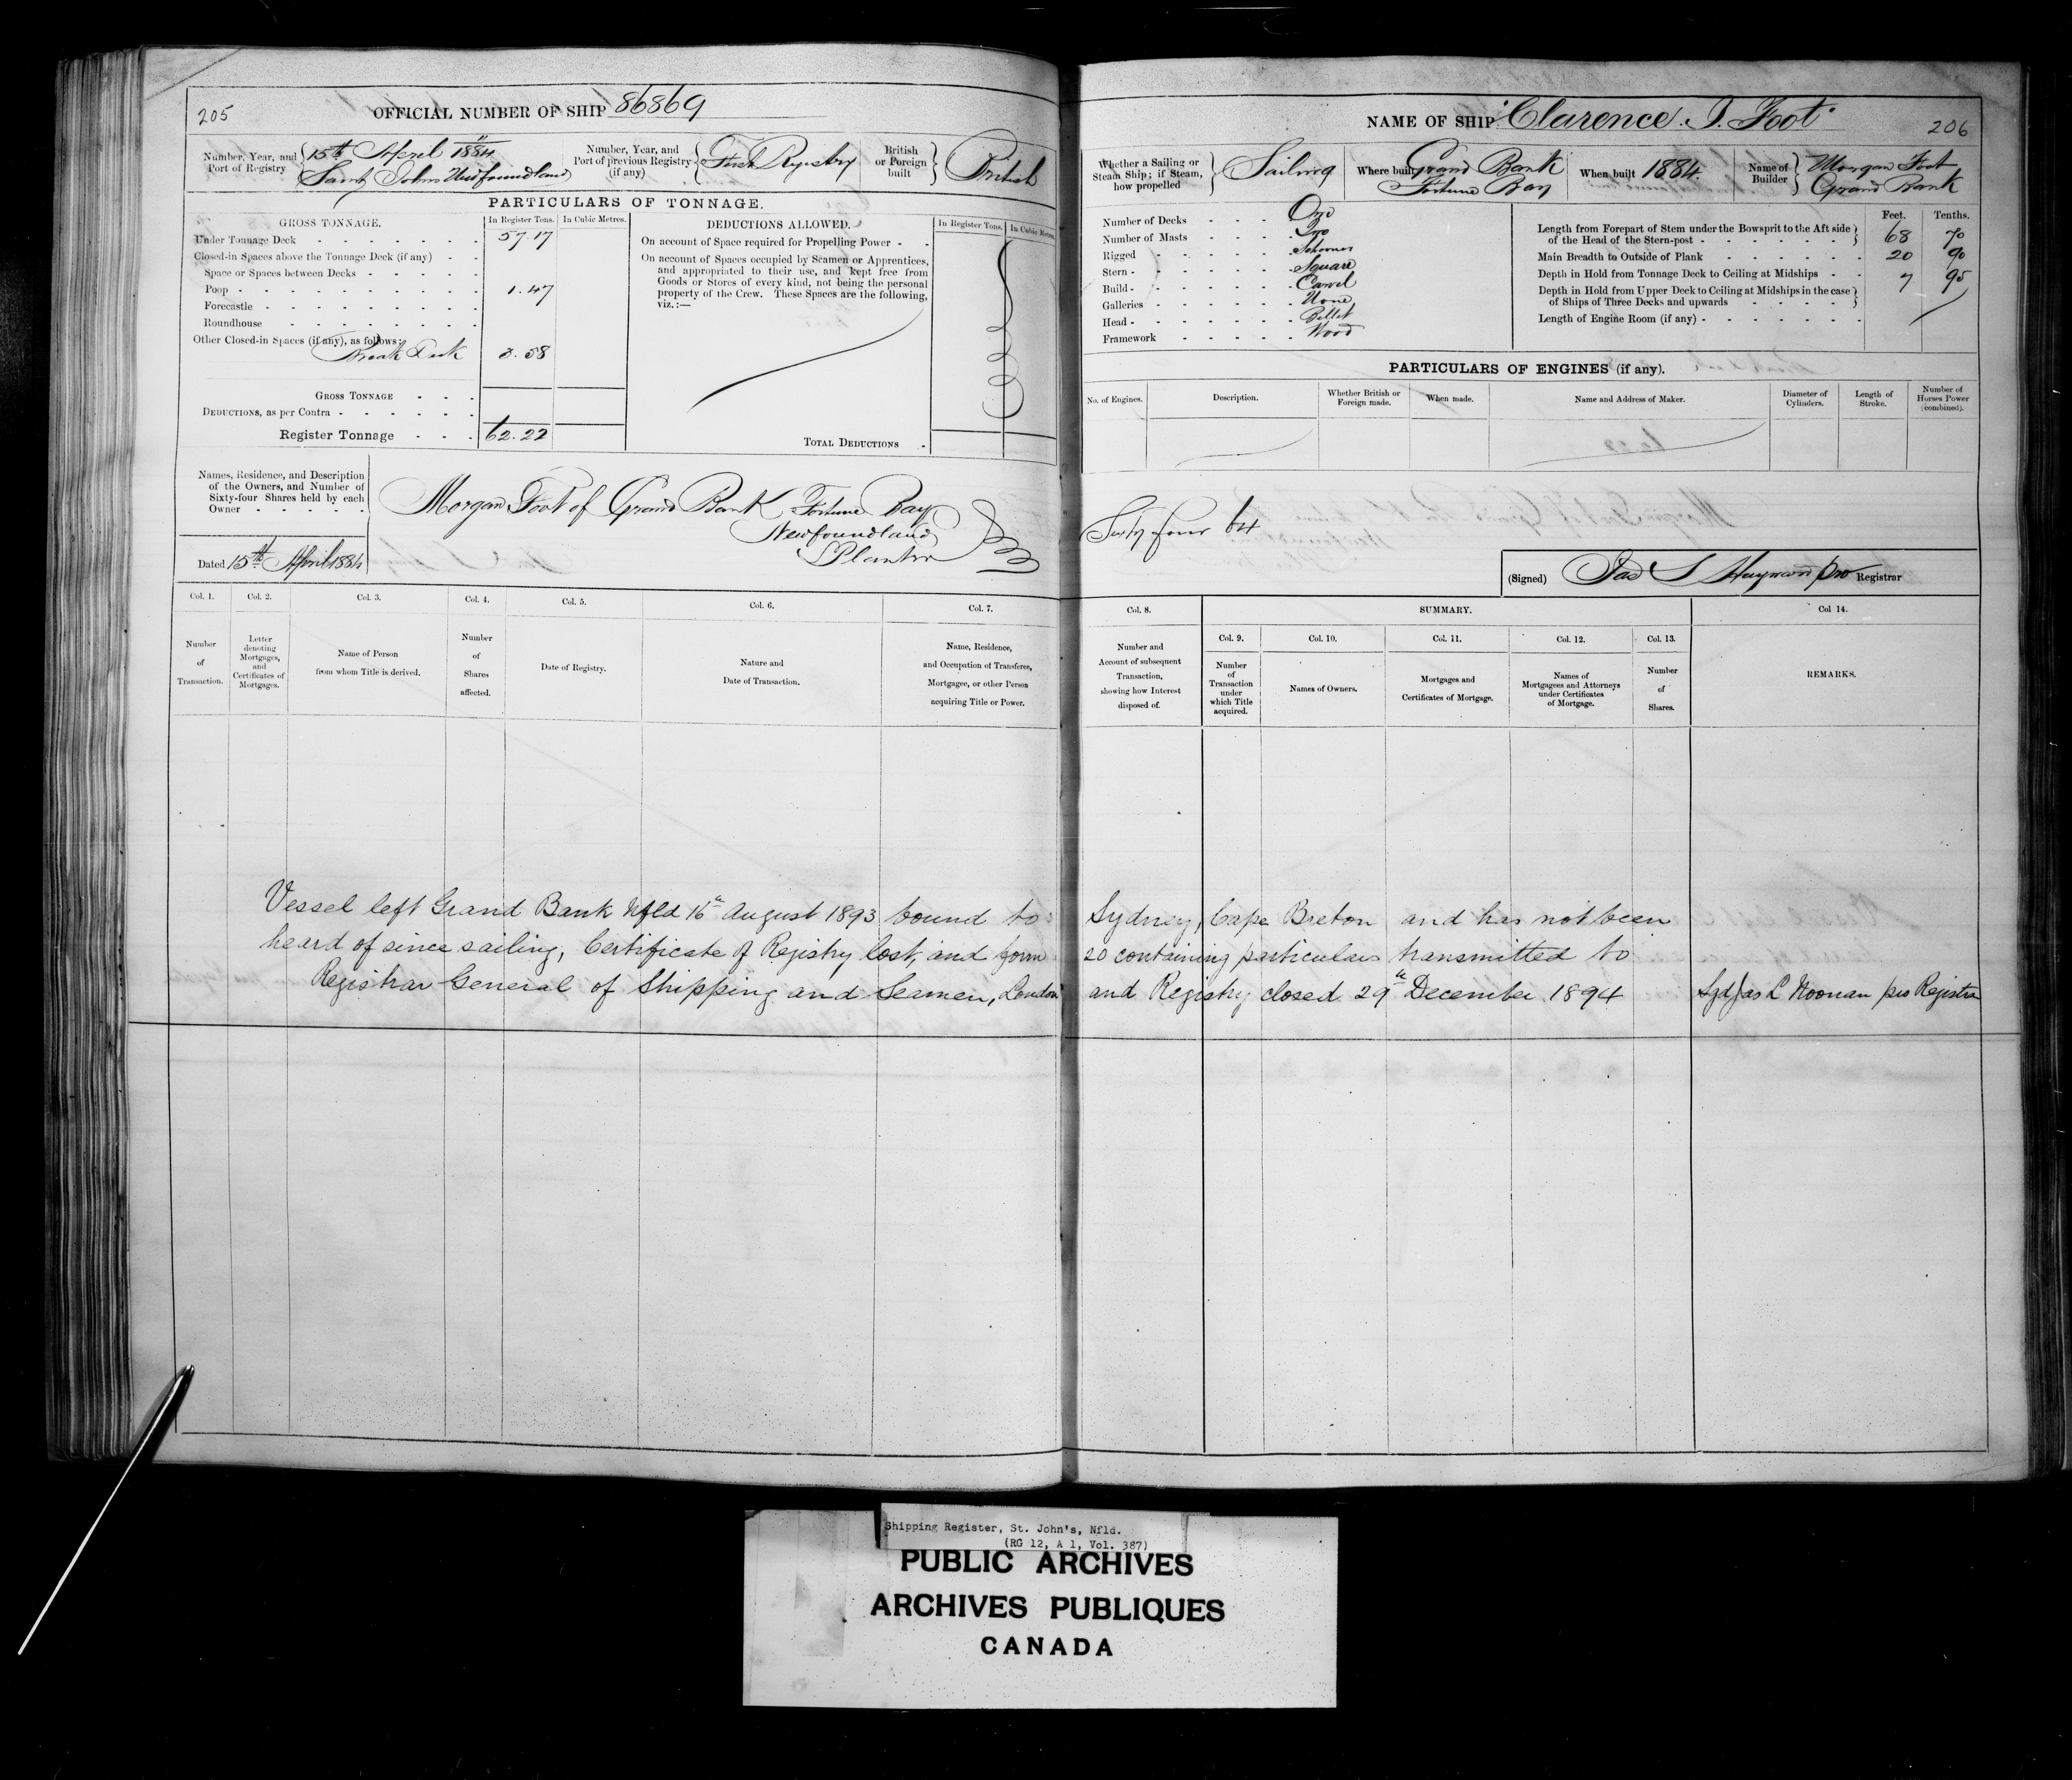 205
OFFICIAL NUMBER OF SHIP 86869
Number, Year, and Port of Registry 15th April 1884 Saint Johns Newfoundland
Number, Year, and Port of previous Registry (if any) First Registry
British or Foreign built British
PARTICULARS OF TONNAGE.
GROSS TONNAGE. In Register Tons. In Cubic Metres.
Under Tonnage Deck 57.17
Closed-in Spaces above the Tonnage Deck (if any)
Space or Spaces between Decks
Poop 1.47
Forecastle
Roundhouse
Other Closed-in Spaces (if any), as follows:
Break Deck 3.58
GROSS TONNAGE
DEDUCTIONS, as per Contra
Register Tonnage 62.22
DEDUCTIONS ALLOWED. In Register Tons. In Cubic Metres.
On account of Space required for Propelling Power
On account of Spaces occupied by Seamen or Apprentices,
and appropriated to their use, and kept free from
Goods or Stores of every kind, not being the personal
property of the Crew. These Spaces are the following,
viz.:—
TOTAL DEDUCTIONS
Names, Residence, and Description
of the Owners, and Number of
Sixty-four Shares held by each
Owner
Morgan Foot of Grand Bank Fortune Bay
Newfoundland
Planter
Dated 15th April 1884
Col. 1. Number of Transaction.
Col. 2. Letter denoting Mortgages, and Certificates of Mortgages.
Col. 3. Name of Person from whom Title is derived.
Col. 4. Number of Shares affected.
Col. 5. Date of Registry.
Col. 6. Nature and Date of Transaction.
Col. 7. Name, Residence, and Occupation of Transferee, Mortgagee, or other Person acquiring Title or Power.
NAME OF SHIP "Clarence Foot"
206
Whether a Sailing or Steam Ship; if Steam, how propelled Sailing
Where built Grand Bank Fortune Bay
When built 1884.
Name of Builder Morgan Foot Grand Bank
Number of Decks One
Number of Masts Two
Rigged Schooner
Stern Square
Build Carvel
Galleries None
Head Billet
Framework Wood
Feet. Tenths.
Length from Forepart of Stem under the Bowsprit to the Aft side
of the Head of the Stern-post 68 70
Main Breadth to Outside of Plank 20 90
Depth in Hold from Tonnage Deck to Ceiling at Midships 7 95
Depth in Hold from Upper Deck to Ceiling at Midships in the case
of Ships of Three Decks and upwards
Length of Engine Room (if any)
PARTICULARS OF ENGINES (if any).
No. of Engines. Description. Whether British or Foreign made. When made. Name and Address of Maker. Diameter of Cylinders. Length of Stroke. Number of Horses Power (combined).
Sixty four 64
(Signed) Jas S Hayward pro Registrar
Col. 8. Number and Account of subsequent Transaction, showing how Interest disposed of.
SUMMARY.
Col. 9. Number of Transaction under which Title acquired.
Col. 10. Names of Owners.
Col. 11. Mortgages and Certificates of Mortgage.
Col. 12. Names of Mortgagees and Attorneys under Certificates of Mortgage.
Col. 13. Number of Shares.
Col 14. REMARKS.
Vessel left Grand Bank Nfld 16th August 1893 bound to Sydney, Cape Breton and has not been
heard of since sailing, Certificate of Registry lost, and form 20 containing particulars transmitted to
Registrar General of Shipping and Seamen, London and Registry closed 29th December 1894 Sgd Jas L Noonan pro Registrar
Shipping Register, St. John's, Nfld.
(RG 12, A 1, Vol. 387)
PUBLIC ARCHIVES
ARCHIVES PUBLIQUES
CANADA